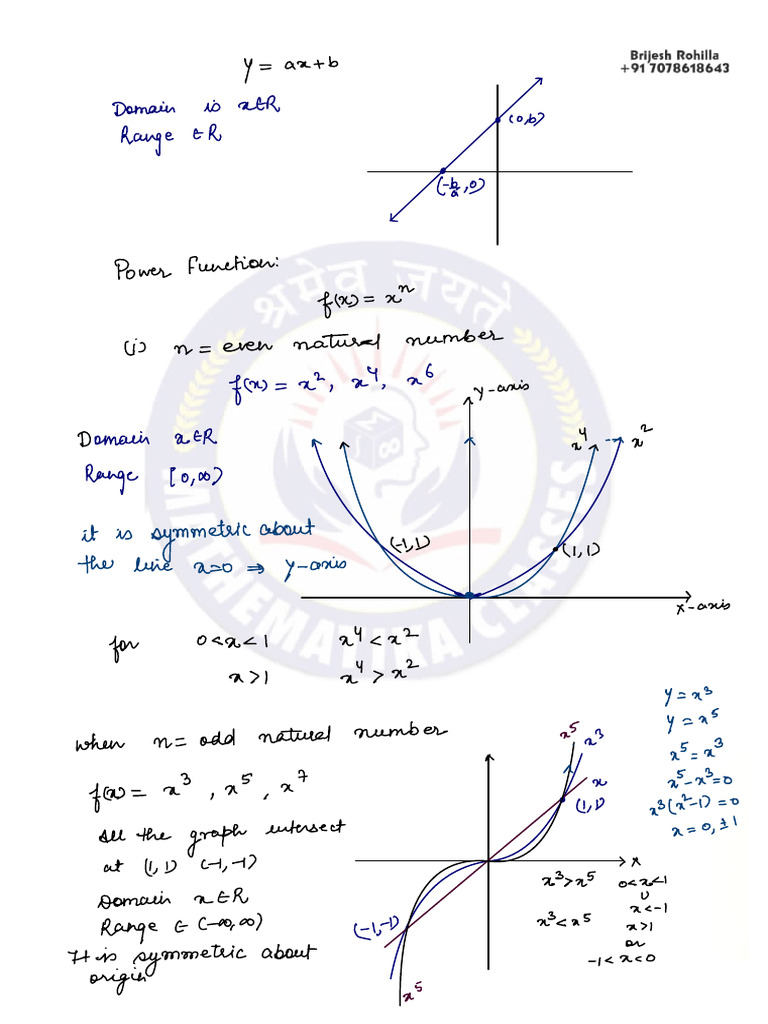 Brijesh Rohilla
+91 7078618643
y = ax+b
Domain is x∈R
Range ∈R
(0,b)
(-b/a, 0)
Power Function:
f(x) = xⁿ
(i) n = even natural number
f(x) = x², x⁴, x⁶
y-axis
x⁴ x²
Domain x∈R
Range [0,∞)
it is symmetric about
the line x=0 ⇒ y-axis
(-1,1)
(1,1)
x-axis
for 0<x<1 x⁴<x²
x>1 x⁴>x²
y = x³
y = x⁵
x⁵ = x³
x⁵-x³=0
x³(x²-1)=0
x = 0, ±1
when n = odd natural number
f(x) = x³, x⁵, x⁷
all the graph intersect
at (1,1) (-1,-1)
Domain x∈R
Range ∈ (-∞,∞)
It is symmetric about
origin
x⁵
x³
x
(1,1)
x
(-1,-1)
x⁵
x³>x⁵ 0<x<1
∪
x<-1
x³<x⁵ x>1
or
-1<x<0
श्रमेव जयते
MI MATHEMATIKA CLASSES